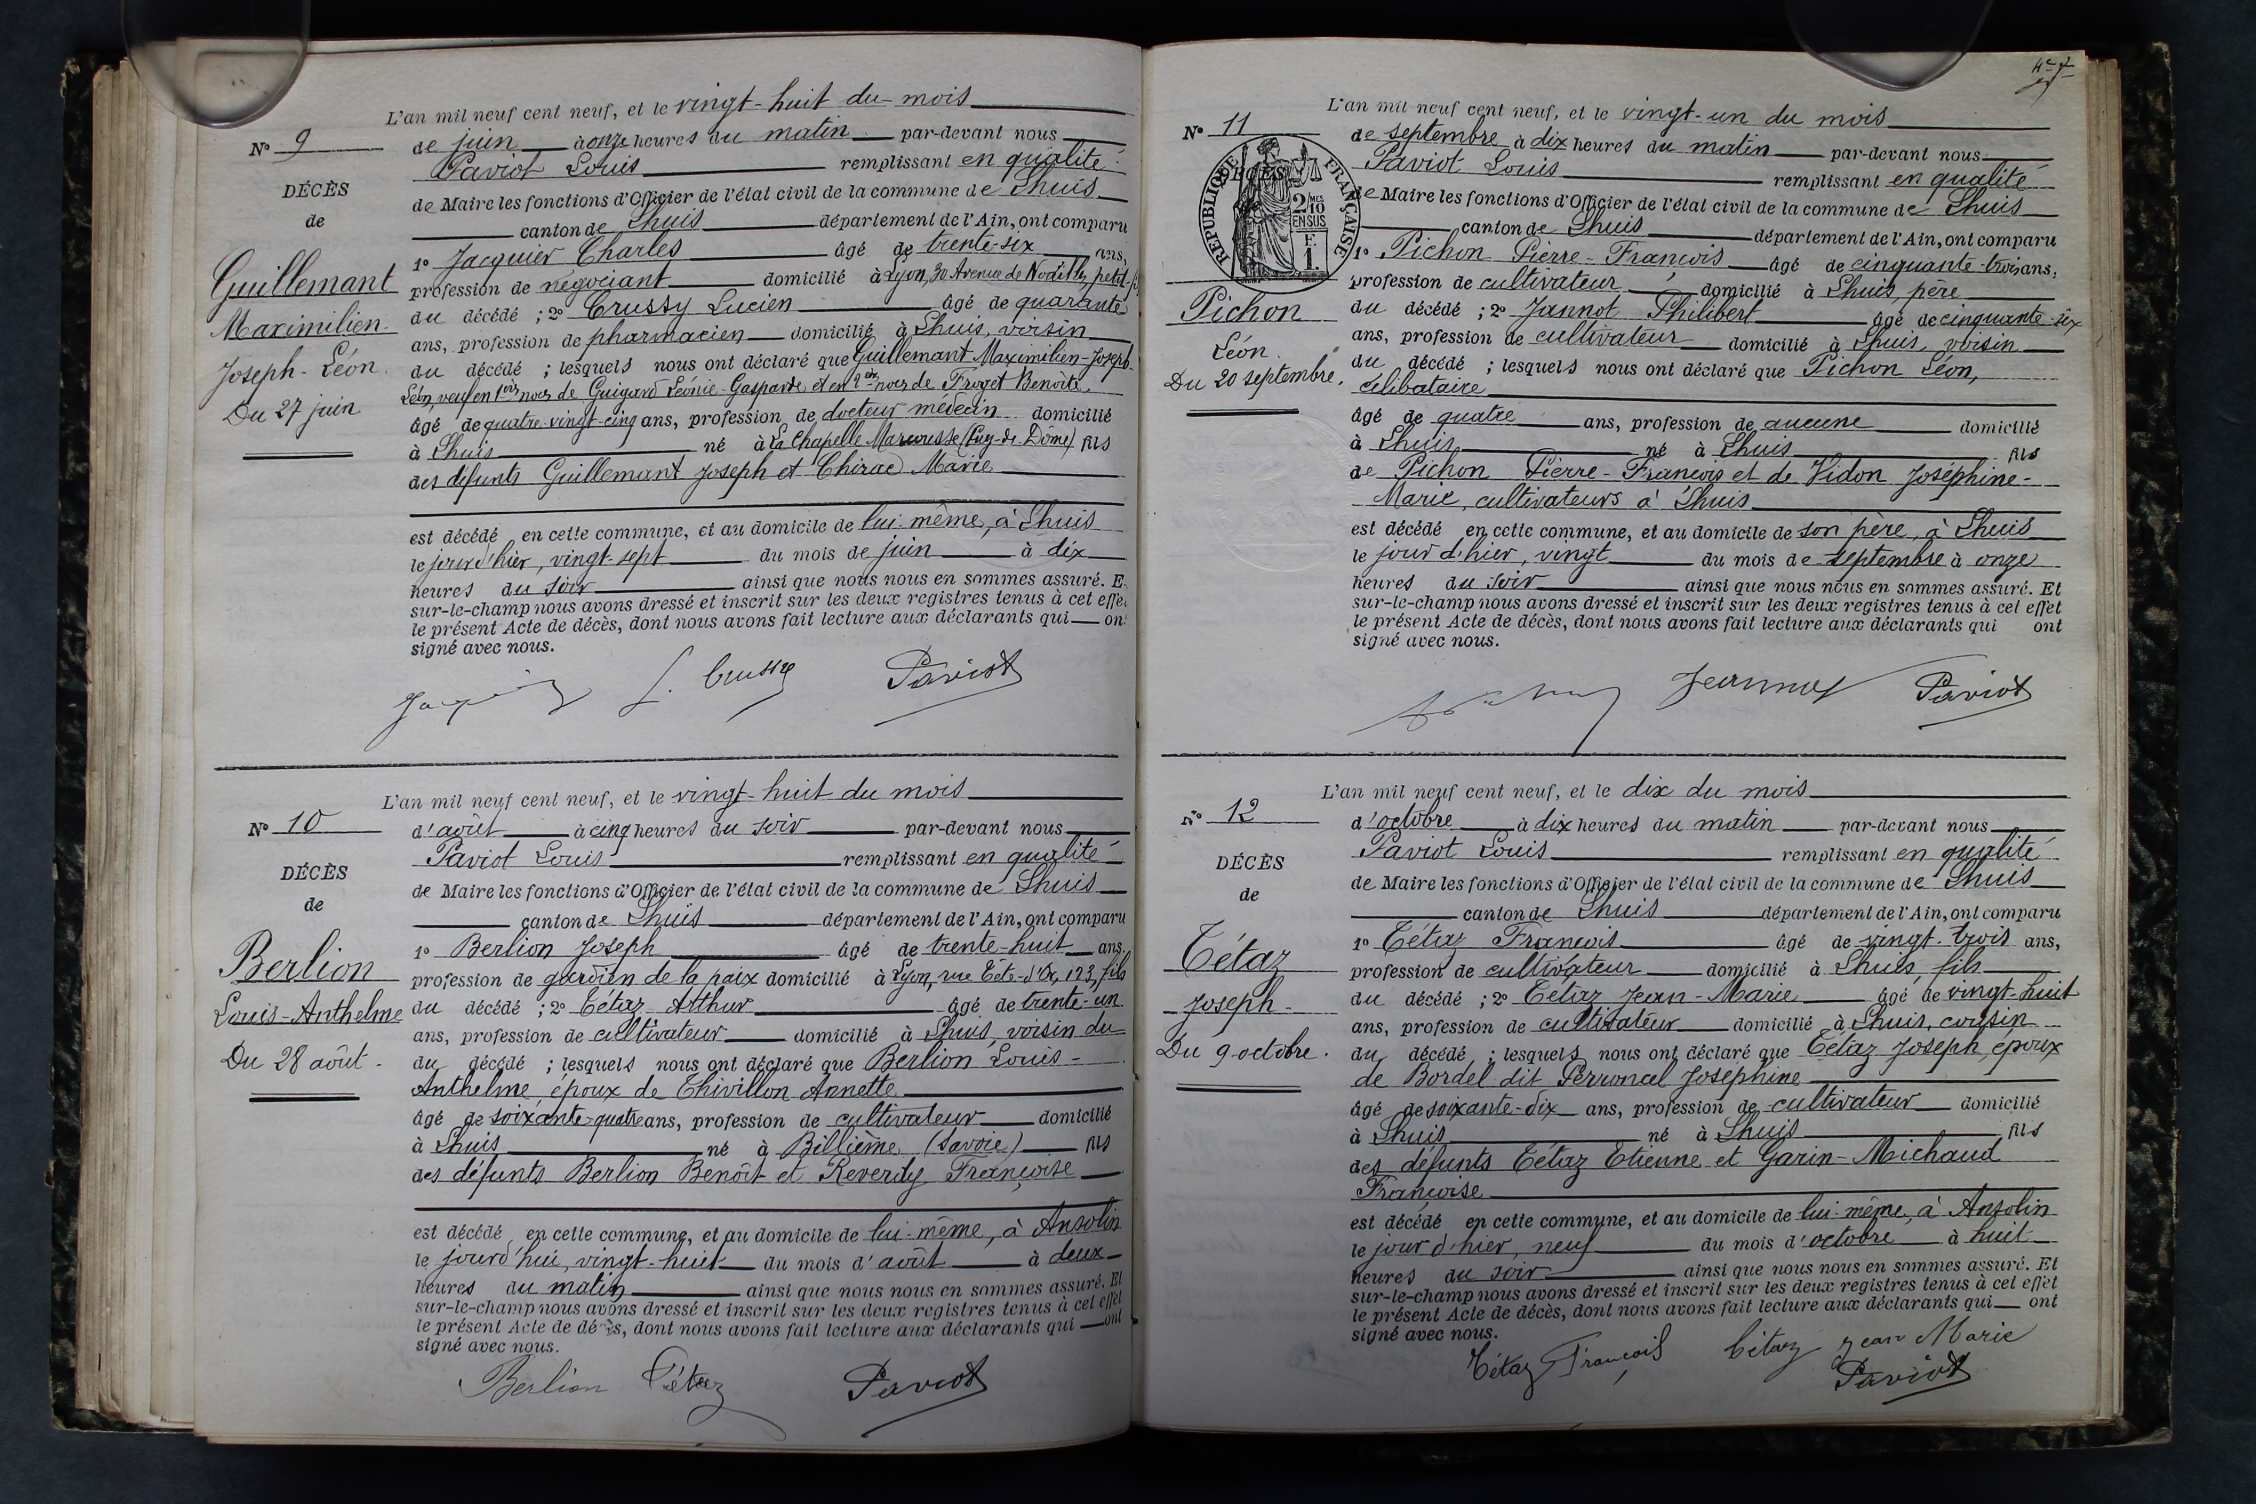 L'an mil neuf cent neuf, et le vingt-huit du mois
N° 9
de juin à onze heures du matin par-devant nous
Paviot Louis remplissant en qualité
DÉCÈS
de Maire les fonctions d'Officier de l'état civil de la commune de Lhuis
de
canton de Lhuis département de l'Ain, ont comparu
1° Jacquier Charles âgé de trente-six ans,
Guillemant
profession de négociant domicilié à Lyon, 30 Avenue de Noailles, petit-fils
du décédé ; 2° Crussy Lucien âgé de quarante
Maximilien
ans, profession de pharmacien domicilié à Lhuis, voisin
Joseph-Léon
du décédé ; lesquels nous ont déclaré que Guillemant Maximilien-Joseph-
Léon, veuf en 1ères noces de Guigard Léonie-Gasparde et en 2e noces de Froget Benoite
Du 27 juin
âgé de quatre-vingt-cinq ans, profession de docteur médecin domicilié
à Lhuis né à La Chapelle (Puy-de-Dôme) fils
des défunts Guillemant Joseph et Chirac Marie
est décédé en cette commune, et au domicile de lui-même, à Lhuis
le jour d'hier, vingt-sept du mois de juin à dix
heures du soir ainsi que nous nous en sommes assuré. E
sur-le-champ nous avons dressé et inscrit sur les deux registres tenus à cet effe
le présent Acte de décès, dont nous avons fait lecture aux déclarants qui on
signé avec nous.
L. Crussy Paviot
L'an mil neuf cent neuf, et le vingt-huit du mois
N° 10
d'août à cinq heures du soir par-devant nous
Paviot Louis remplissant en qualité
DÉCÈS
de Maire les fonctions d'Officier de l'état civil de la commune de Lhuis
de
canton de Lhuis département de l'Ain, ont comparu
1° Berlion Joseph âgé de trente-huit ans,
Berlion
profession de gardien de la paix domicilié à Lyon, rue Tête-d'Or, 123, fils
Louis-Anthelme
du décédé ; 2° Tétaz Atthur âgé de trente-un
ans, profession de cultivateur domicilié à Lhuis, voisin du
Du 28 août
du décédé ; lesquels nous ont déclaré que Berlion Louis-
Anthelme, époux de Thivillon Annette
âgé de soixante-quatre ans, profession de cultivateur domicilié
à Lhuis né à Billième (Savoie) fils
des défunts Berlion Benoît et Reverdy Françoise
est décédé en cette commune, et au domicile de lui-même, à Ansolin
le jourd'hui, vingt-huit du mois d'août à deux
heures du matin ainsi que nous nous en sommes assuré. Et
sur-le-champ nous avons dressé et inscrit sur les deux registres tenus à cet effet
le présent Acte de décès, dont nous avons fait lecture aux déclarants qui ont
signé avec nous.
Berlion Tétaz Paviot
L'an mil neuf cent neuf, et le vingt-un du mois
N° 11
de septembre à dix heures du matin par-devant nous
Paviot Louis remplissant en qualité
DÉCÈS
RÉPUBLIQUE FRANÇAISE
2/10 MES
EN SUS
F. 1
de Maire les fonctions d'Officier de l'état civil de la commune de Lhuis
canton de Lhuis département de l'Ain, ont comparu
1° Pichon Pierre-François âgé de cinquante-trois ans,
profession de cultivateur domicilié à Lhuis, père
Pichon
du décédé ; 2° Jannot Philibert âgé de cinquante-six
Léon
ans, profession de cultivateur domicilié à Lhuis, voisin
Du 20 septembre.
du décédé ; lesquels nous ont déclaré que Pichon Léon,
célibataire
âgé de quatre ans, profession de aucune domicilié
à Lhuis né à Lhuis fils
de Pichon Pierre-François et de Vidon Joséphine-
Marie, cultivateurs à Lhuis
est décédé en cette commune, et au domicile de son père, à Lhuis
le jour d'hier, vingt du mois de septembre à onze
heures du soir ainsi que nous nous en sommes assuré. Et
sur-le-champ nous avons dressé et inscrit sur les deux registres tenus à cet effet
le présent Acte de décès, dont nous avons fait lecture aux déclarants qui ont
signé avec nous.
Paviot
L'an mil neuf cent neuf, et le dix du mois
N° 12
d'octobre à dix heures du matin par-devant nous
Paviot Louis remplissant en qualité
DÉCÈS
de Maire les fonctions d'Officier de l'état civil de la commune de Lhuis
de
canton de Lhuis département de l'Ain, ont comparu
1° Tétaz François âgé de vingt-trois ans,
Tétaz
profession de cultivateur domicilié à Lhuis, fils
Joseph
du décédé ; 2° Tétaz Jean-Marie âgé de vingt-huit
ans, profession de cultivateur domicilié à Lhuis, cousin
Du 9 octobre.
du décédé ; lesquels nous ont déclaré que Tétaz Joseph, époux
de Bordel dit Perroncel Joséphine
âgé de soixante-dix ans, profession de cultivateur domicilié
à Lhuis né à Lhuis fils
des défunts Tétaz Etienne et Garin-Michaud
Françoise
est décédé en cette commune, et au domicile de lui-même, à Ansolin
le jour d'hier, neuf du mois d'octobre à huit
heures du soir ainsi que nous nous en sommes assuré. Et
sur-le-champ nous avons dressé et inscrit sur les deux registres tenus à cet effet
le présent Acte de décès, dont nous avons fait lecture aux déclarants qui ont
signé avec nous.
Tétaz François Tétaz Jean Marie
Paviot